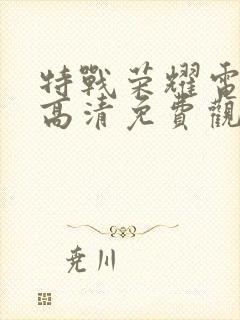 特戰荣耀電
高清免費觀
尭川